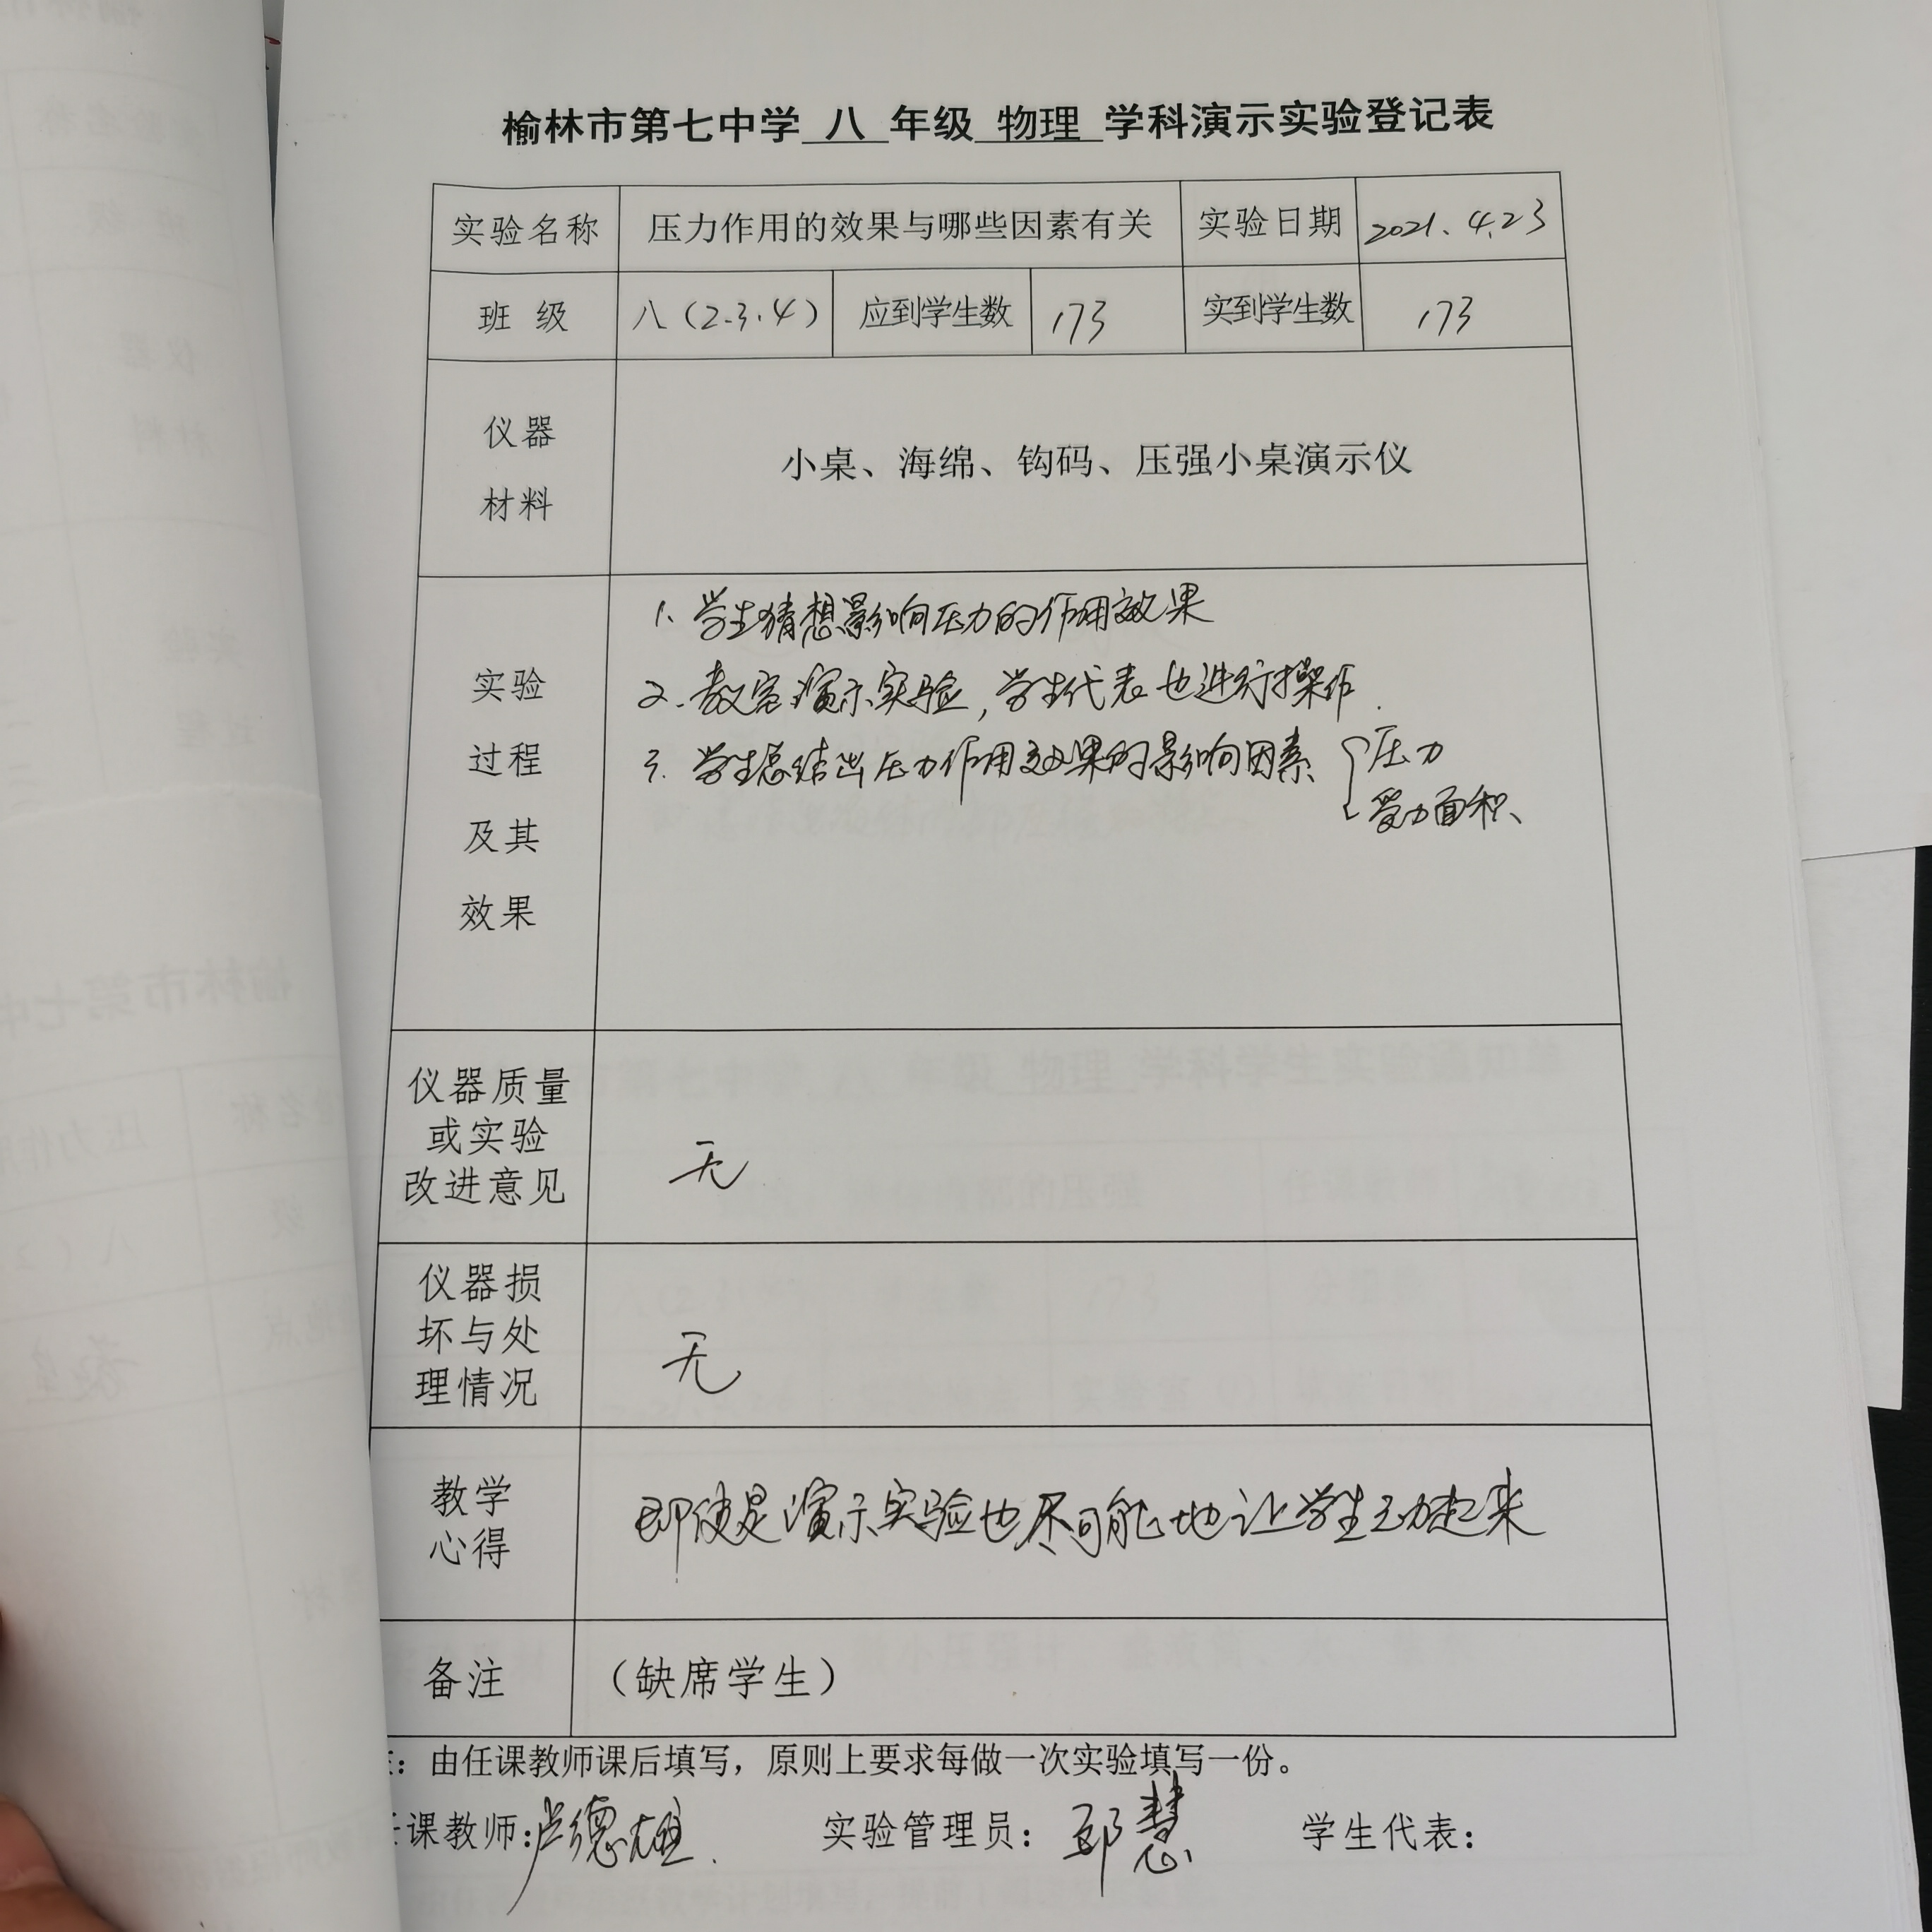 榆林市第七中学 八 年级 物理 学科演示实验登记表
实验名称 压力作用的效果与哪些因素有关 实验日期 2021.4.23
班 级 八(2.3.4) 应到学生数 173 实到学生数 173
仪器
材料
小桌、海绵、钩码、压强小桌演示仪
实验
过程
及其
效果
1. 学生猜想影响压力的作用效果
2. 教室演示实验,学生代表也进行操作.
3. 学生总结出压力作用效果的影响因素 { 压力
受力面积、
仪器质量
或实验
改进意见
无
仪器损
坏与处
理情况
无
教学
心得
即使是演示实验也尽可能地让学生动起来
备注 (缺席学生)
:由任课教师课后填写,原则上要求每做一次实验填写一份。
任课教师:卢德雄. 实验管理员: 慧 学生代表: